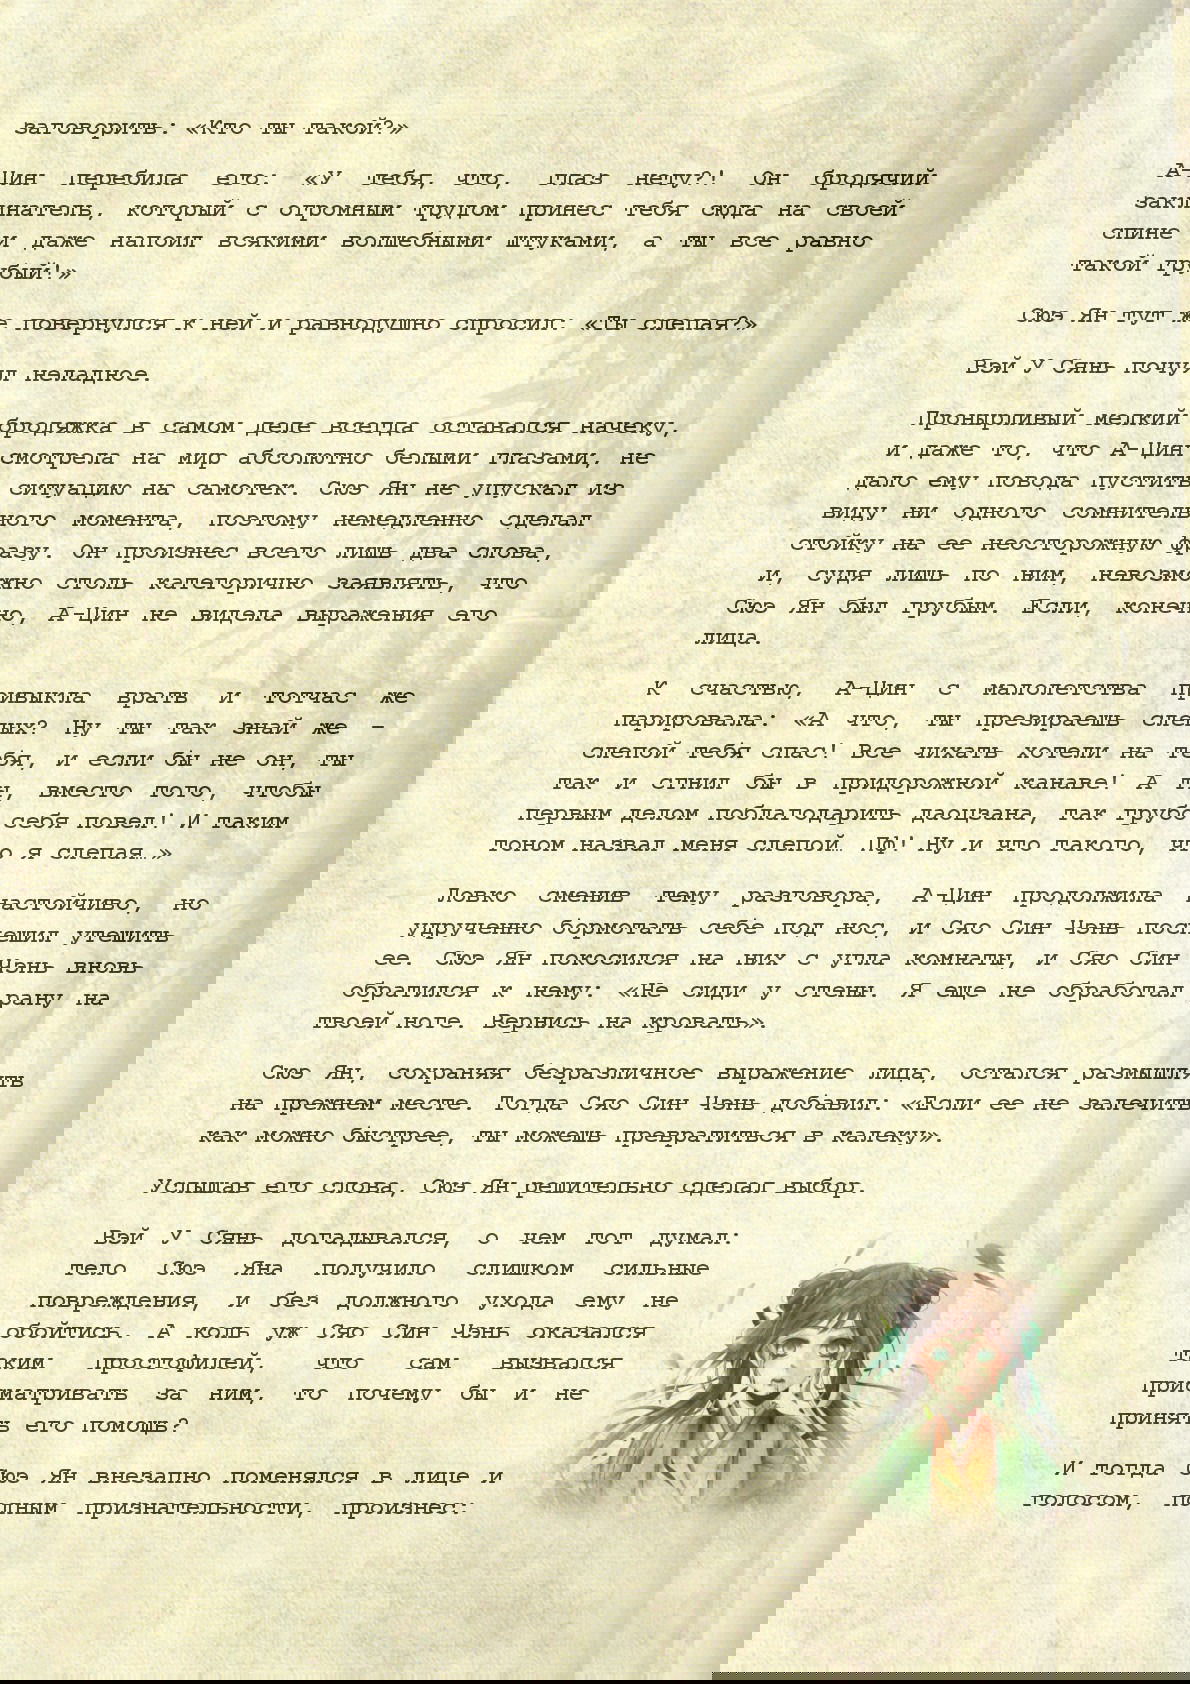 заговорить: «Кто ты такой?»
А-Цин перебила его: «У тебя, что, глаз нету?! Он бродячий
заклинатель, который с огромным трудом принес тебя сюда на своей
спине и даже напоил всякими волшебными штуками, а ты все равно
такой грубый!»
Сюэ Ян тут же повернулся к ней и равнодушно спросил: «Ты слепая?»
Вэй У Сянь почуял неладное.
Пронырливый мелкий бродяжка в самом деле всегда оставался начеку,
и даже то, что А-Цин смотрела на мир абсолютно белыми глазами, не
дало ему повода пустить ситуацию на самотек. Сюэ Ян не упускал из
виду ни одного сомнительного момента, поэтому немедленно сделал
стойку на ее неосторожную фразу. Он произнес всего лишь два слова,
и, судя лишь по ним, невозможно столь категорично заявлять, что
Сюэ Ян был грубым. Если, конечно, А-Цин не видела выражения его
лица.
К счастью, А-Цин с малолетства привыкла врать и тотчас же
парировала: «А что, ты презираешь слепых? Ну ты так знай же –
слепой тебя спас! Все чихать хотели на тебя, и если бы не он, ты
так и сгнил бы в придорожной канаве! А ты, вместо того, чтобы
первым делом поблагодарить даоцзана, так грубо себя повел! И таким
тоном назвал меня слепой… Пф! Ну и что такого, что я слепая…»
Ловко сменив тему разговора, А-Цин продолжила настойчиво, но
удрученно бормотать себе под нос, и Сяо Син Чэнь поспешил утешить
ее. Сюэ Ян покосился на них с угла комнаты, и Сяо Син Чэнь вновь
обратился к нему: «Не сиди у стены. Я еще не обработал рану на
твоей ноге. Вернись на кровать».
Сюэ Ян, сохраняя безразличное выражение лица, остался размышлять
на прежнем месте. Тогда Сяо Син Чэнь добавил: «Если ее не залечить
как можно быстрее, ты можешь превратиться в калеку».
Услышав его слова, Сюэ Ян решительно сделал выбор.
Вэй У Сянь догадывался, о чем тот думал:
тело Сюэ Яна получило слишком сильные
повреждения, и без должного ухода ему не
обойтись. А коль уж Сяо Син Чэнь оказался
таким простофилей, что сам вызвался
присматривать за ним, то почему бы и не
принять его помощь?
И тогда Сюэ Ян внезапно поменялся в лице и
голосом, полным признательности, произнес: